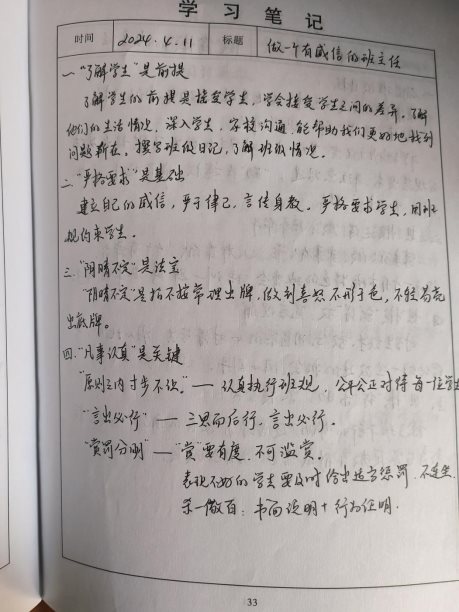 学习笔记
时间 2024.4.11 标题 做一个有威信的班主任
一.“了解学生”是前提
了解学生的前提是接受学生,学会接受学生之间的差异。了解
他们的生活情况,深入学生,家校沟通,能帮助我们更好地找到
问题所在。撰写班级日记,了解班级情况。
二.“严格要求”是基础
建立自己的威信,严于律己,言传身教。严格要求学生,用班
规约束学生。
三.“阴晴不定”是法宝
“阴晴不定”是指不按常理出牌,做到喜怒不形于色,不轻易亮
出底牌。
四.“凡事认真”是关键
“原则之内寸步不让。”—认真执行班规,公平公正对待每一位学生
“言出必行”—三思而后行,言出必行。
“赏罚分明”—“赏”要有度,不可滥赏。
表现不好的学生要及时给出适当惩罚,不连坐.
杀一儆百:书面说明+行为证明.
33